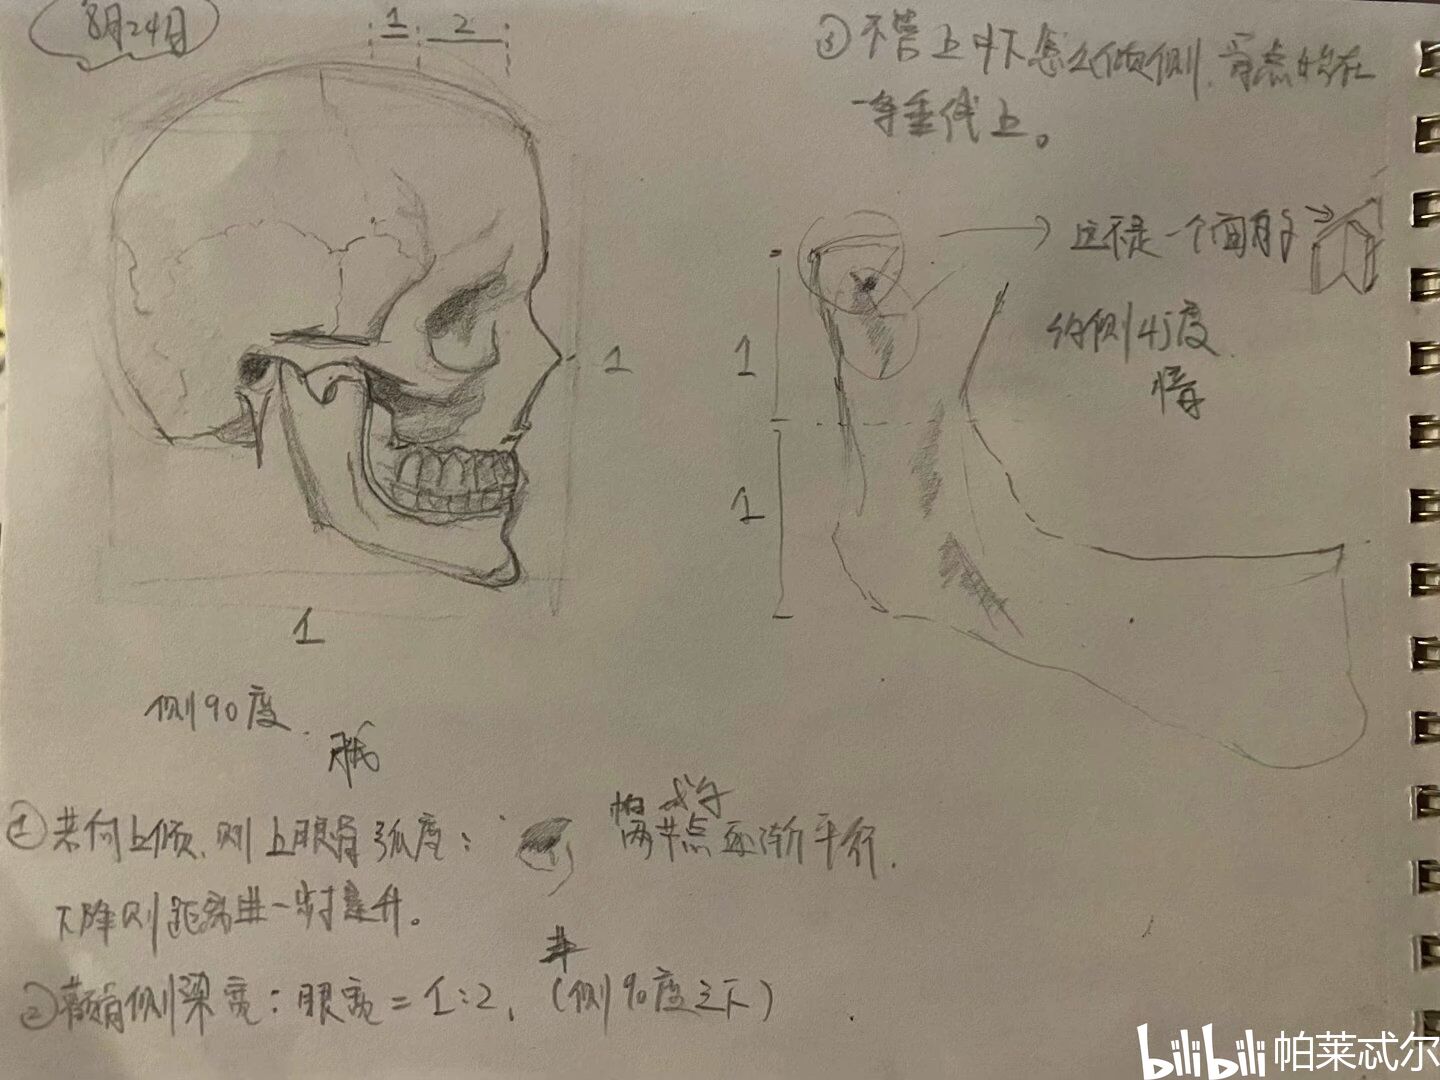 8月24日
1 2
③不管上下怎么倾侧,骨点始在
一条垂线上。
这不是一个面,有
1
1
约侧45度
1
1
侧90度
①若向上倾,则上眼骨弧度:
两节点逐渐平行.
下降则距离进一步提升。
②颧骨侧梁宽:眼宽=1:2,(侧90度之下)
bilibili 帕莱忒尔